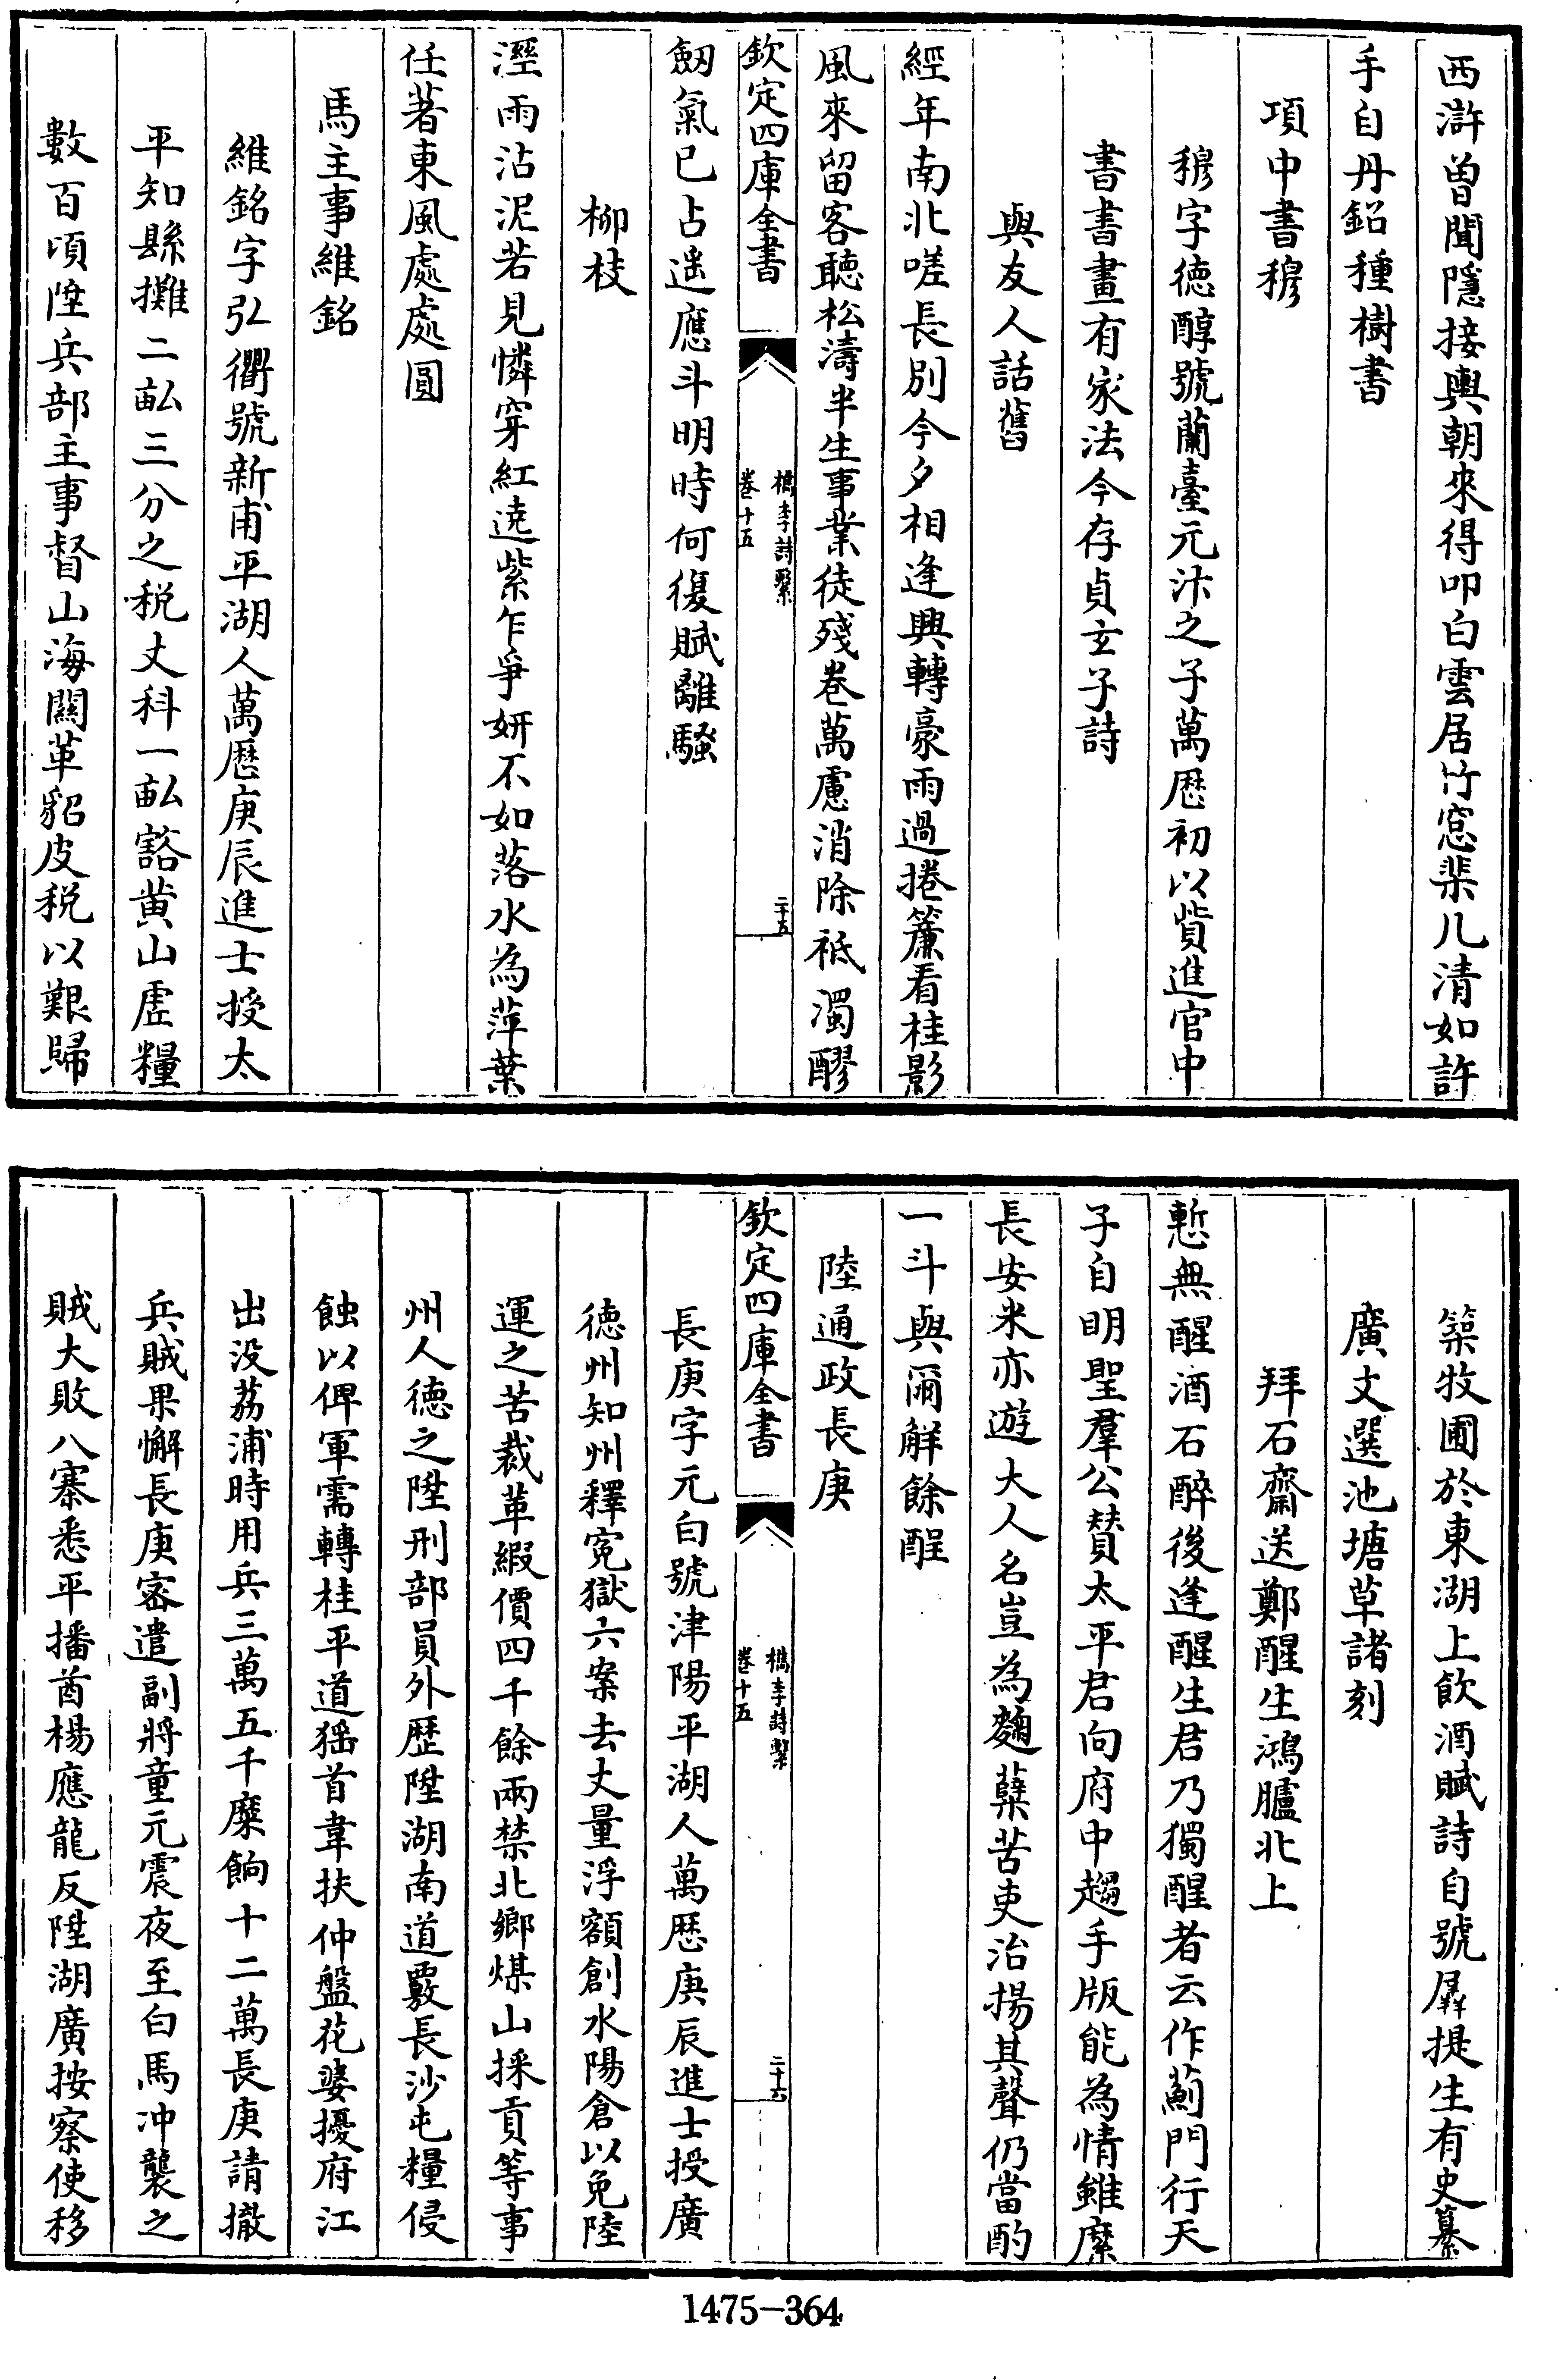 西滸曽聞隱接輿朝來得叩白雲居竹窓棐几清如許
手自丹鉛種樹書
項中書穆
穆字徳醇號蘭臺元汴之子萬歴初以貲進官中
書書畫有家法今存貞玄子詩
與友人話舊
經年南北嗟長别今夕相逢興轉豪雨過捲簾看桂影
風來留客聽松濤半生事業徒殘卷萬慮消除祗濁醪
欽定四庫全書
檇李詩繫
卷十五
二十五
劒氣已占遥應斗明時何復賦離騷
柳枝
溼雨沾泥若見憐穿紅遶紫乍爭妍不如落水為萍葉
任著東風處處圓
馬主事維銘
維銘字弘衢號新甫平湖人萬歴庚辰進士授太
平知縣攤二畝三分之税丈科一畝豁黄山虚糧
數百頃陞兵部主事督山海關革貂皮税以艱歸
築牧圃於東湖上飲酒賦詩自號羼提生有史纂
廣文選池塘草諸刻
拜石齋送鄭醒生鴻臚北上
慙無醒酒石醉後逢醒生君乃獨醒者云作薊門行天
子自明聖羣公賛太平君向府中趨手版能為情雖縻
長安米亦遊大人名豈為麴蘖苦吏治揚其聲仍當酌
一斗與爾解餘酲
陸通政長庚
欽定四庫全書
檇李詩繫
卷十五
二十六
長庚字元白號津陽平湖人萬歴庚辰進士授廣
徳州知州釋寃獄六案去丈量浮額創水陽倉以免陸
運之苦裁革緞價四千餘兩禁北鄉煤山採貢等事
州人徳之陞刑部員外歴陞湖南道覈長沙屯糧侵
蝕以俾軍需轉桂平道猺首韋扶仲盤花婆擾府江
出没荔浦時用兵三萬五千糜餉十二萬長庚請撤
兵賊果懈長庚宻遣副將童元震夜至白馬冲襲之
賊大敗八寨悉平播酋楊應龍反陞湖廣按察使移
1475-364